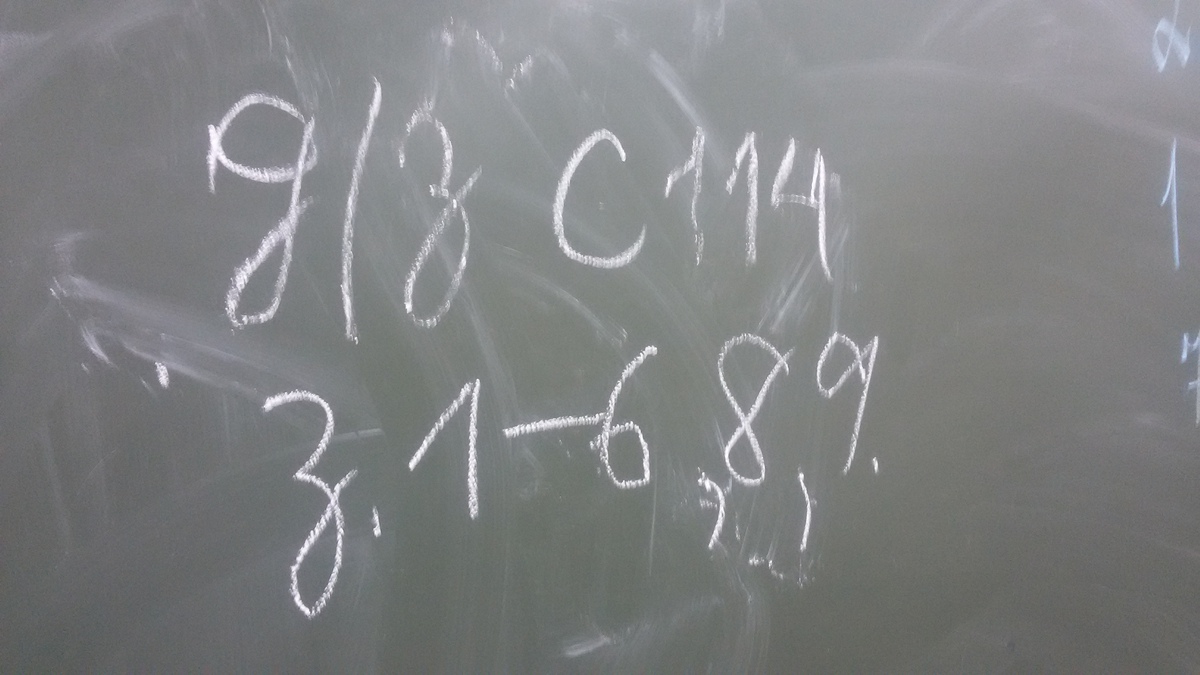 д/з с 114
з. 1-6, 8, 9.